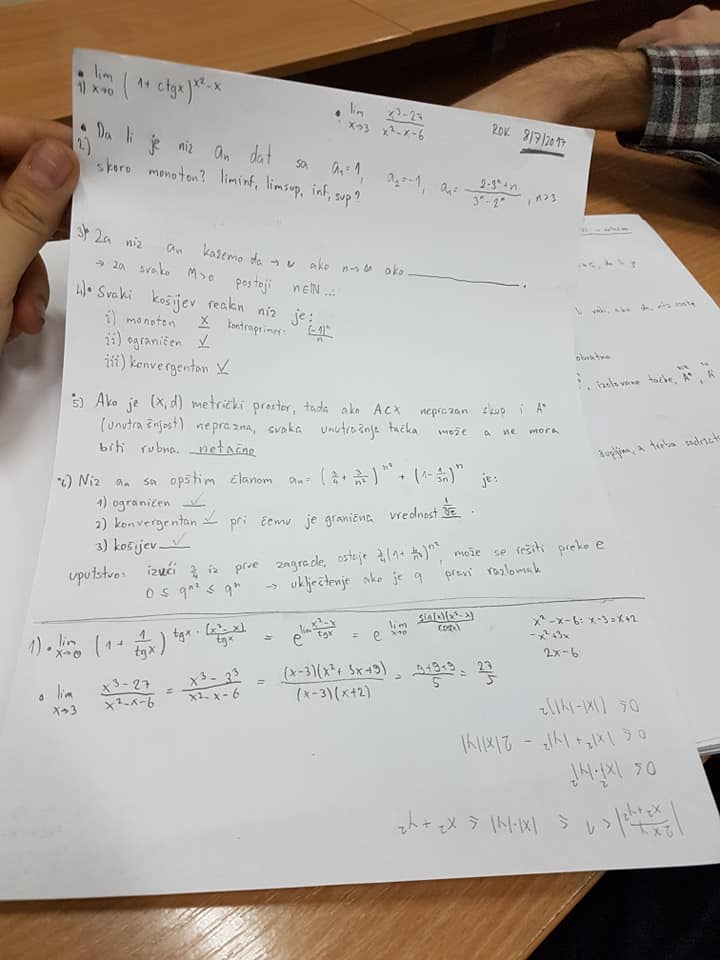 • lim x→0 (1+ctgx)^x²-x
1)
• lim x→3 x³-27 / x²-x-6
ROK 8/7/2017
• Da li je niz an dat sa a1=1, a2=-1, an= 2·3ⁿ+n / 3ⁿ-2ⁿ , n≥3
2) skoro monoton? liminf, limsup, inf, sup?
3) Za niz an kažemo da → ako n→∞ ako ________.
→ za svako M>0 postoji n∈IN...
4)• Svaki košijev realan niz je:
i) monoton x kontraprimer: (-1)ⁿ/n
ii) ograničen ✓
iii) konvergentan ✓
5) Ako je (X,d) metrički prostor, tada ako A⊂X neprazan skup i A°
(unutrašnjost) neprazna, svaka unutrašnja tačka može a ne mora
biti rubna. netačno
6) Niz an sa opštim članom an= (3/4 + 3/n²)^n² + (1- 1/3n)^n je:
1) ograničen ✓
2) konvergentan ✓ pri čemu je granična vrednost 1/∛e.
3) košijev ✓
uputstvo: izvući 3/4 iz prve zagrade, ostaje 3/4(1+ /n²)^n², može se rešiti preko e
0 ≤ q^n² ≤ qⁿ → uklještenje ako je q pravi razlomak
1) • lim x→0 (1+ 1/tgx)^tgx·(x²-x)/tgx = e^lim x²-x/tgx = e^lim x→0 (x²-x)/cos(x)
x²-x-6: x-3=x+2
-x²+3x
2x-6
• lim x→3 x³-27 / x²-x-6 = x³-3³ / x²-x-6 = (x-3)(x²+3x+9) / (x-3)(x+2) = 9+9+9 / 5 = 27/5
0≤ (|x|-|y|)²
0≤ |x|²+|y|² - 2|x||y|
0≤ |x|²·|y|²
|2xy / x²+y²| < 1 ≤ |x|·|y| ≤ x²+y²
obratno
izolovane tačke, A°, A'